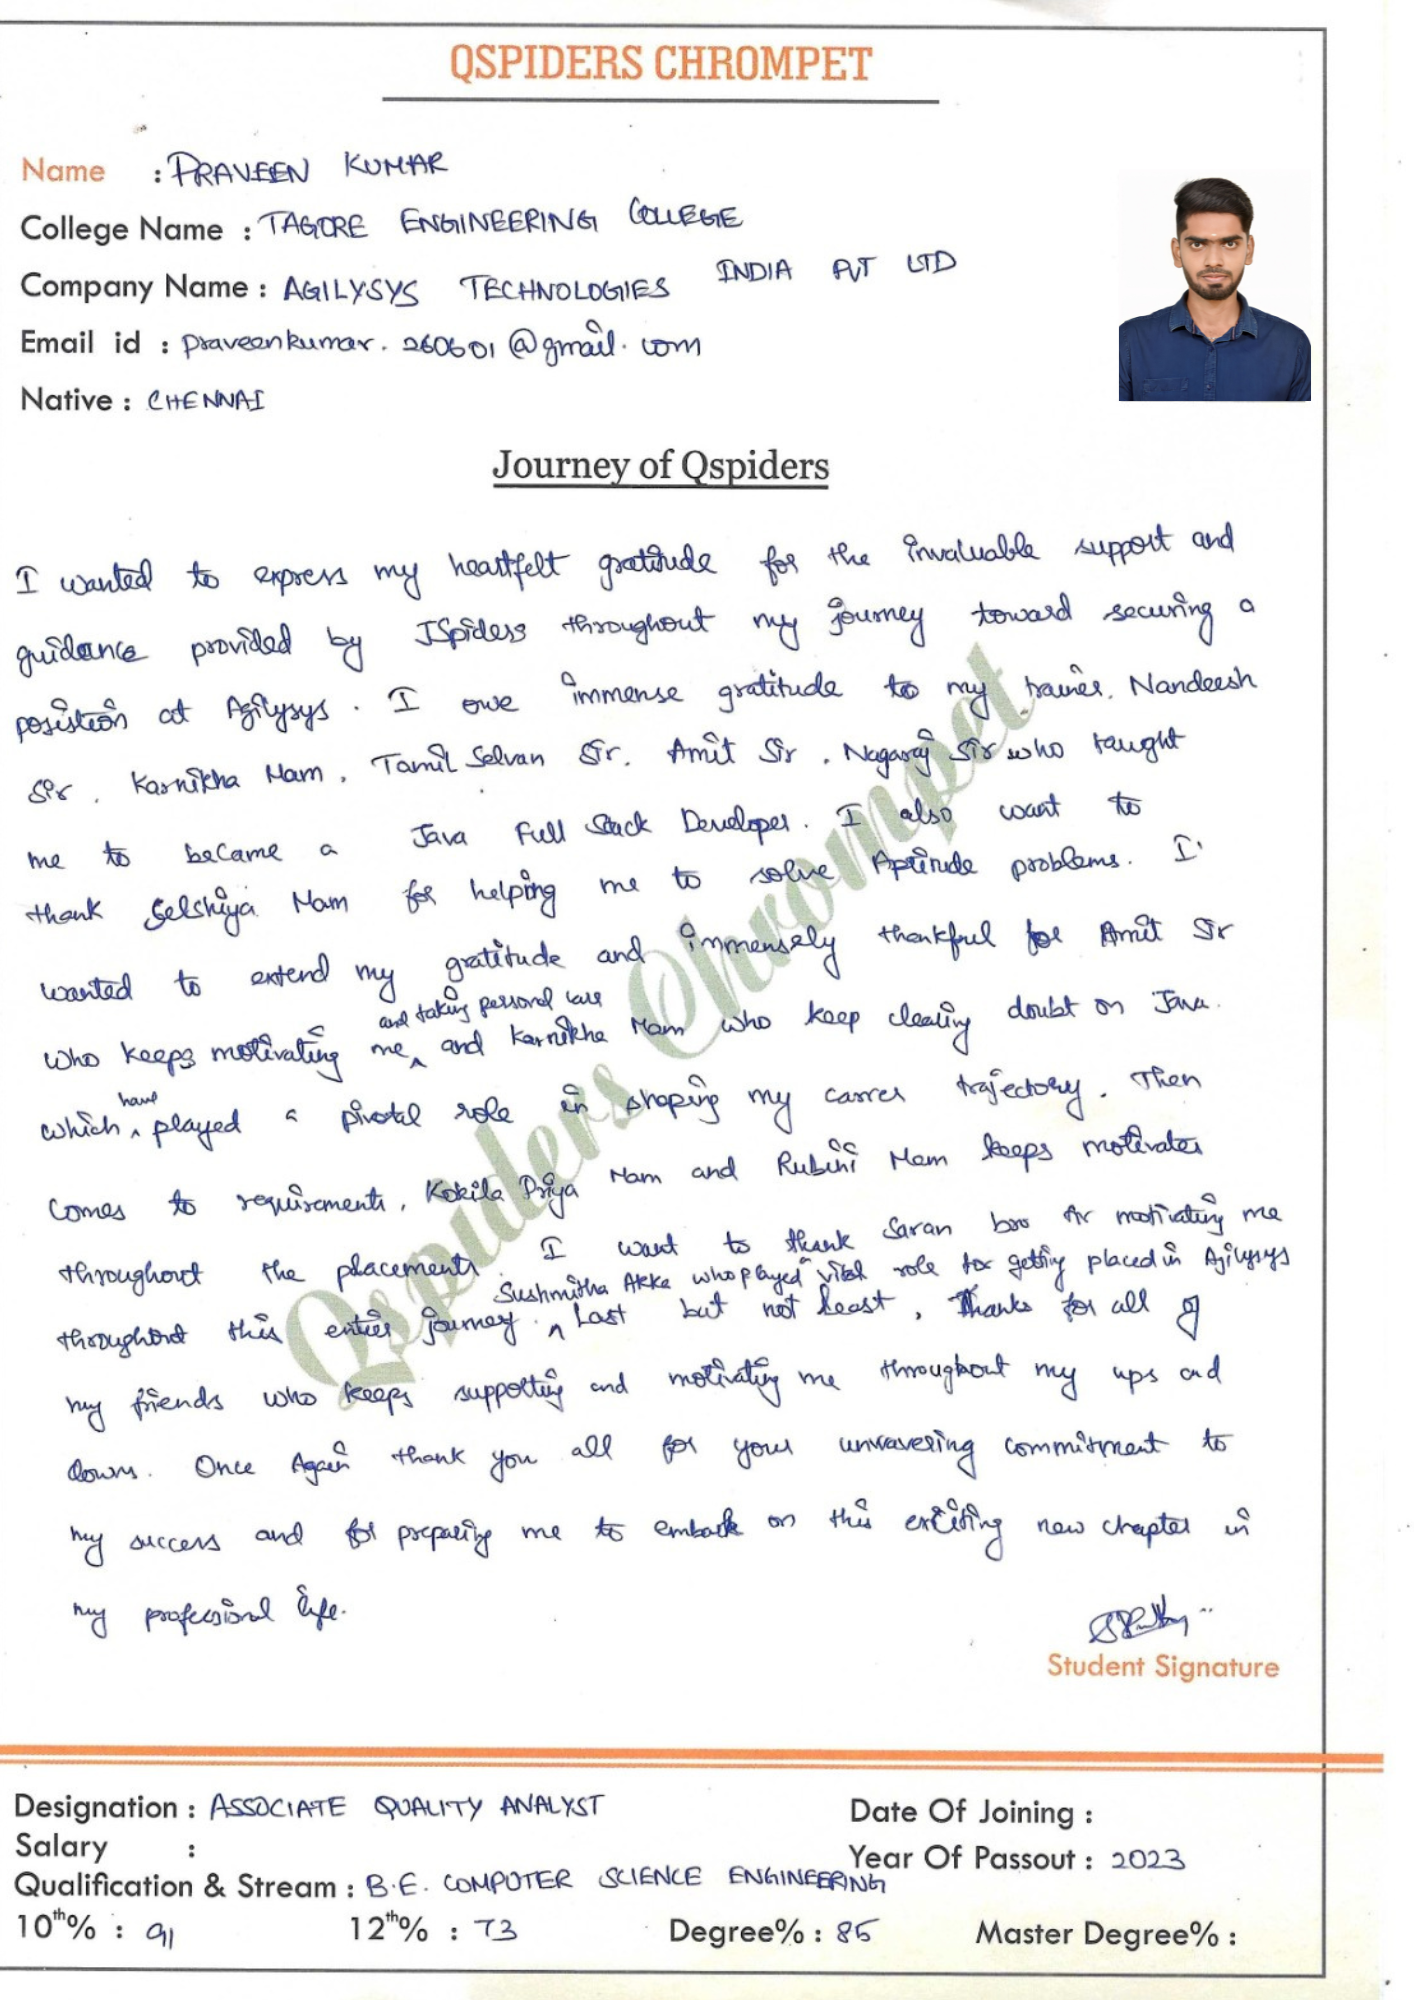 QSPIDERS CHROMPET
Name : PRAVEEN KUMAR
College Name : TAGORE ENGINEERING COLLEGE
Company Name : AGILYSYS TECHNOLOGIES INDIA PVT LTD
Email id : praveenkumar.260601@gmail.com
Native : CHENNAI
Journey of Qspiders
I wanted to express my heartfelt gratitude for the invaluable support and
guidance provided by JSpiders throughout my journey toward securing a
position at Agilysys. I owe immense gratitude to my trainer. Nandeesh
Sir, Karnikha Mam, Tamil Selvan Sir, Amit Sir, Nagaraj Sir who taught
me to became a Java Full Stack Developer. I also want to
thank Selshiya Mam for helping me to solve Aptitude problems. I
wanted to extend my gratitude and immensely thankful for Amit Sir
who keeps motivating me and taking personal care and Karnikha Mam who keep clearing doubt on Java.
which have played a pivotal role in shaping my carrer trajectory. Then
comes to requirements, Kokila Priya Mam and Rubini Mam keeps motivates
throughout the placements. I want to thank Saran bro for motivating me
throughout this entier journey. Sushmitha Akka who played vital role for getting placed in Agilysys
Last but not least, Thanks for all of
my friends who keeps supporting and motivating me throughout my ups and
downs. Once Again thank you all for your unwavering commitment to
my success and for preparing me to embark on this exciting new chapter in
my professional life.
Student Signature
Designation : ASSOCIATE QUALITY ANALYST
Date Of Joining :
Salary :
Year Of Passout : 2023
Qualification & Stream : B.E. COMPUTER SCIENCE ENGINEERING
10th% : 91 12th% : 73 Degree% : 85 Master Degree% :
Qspiders Chrompet